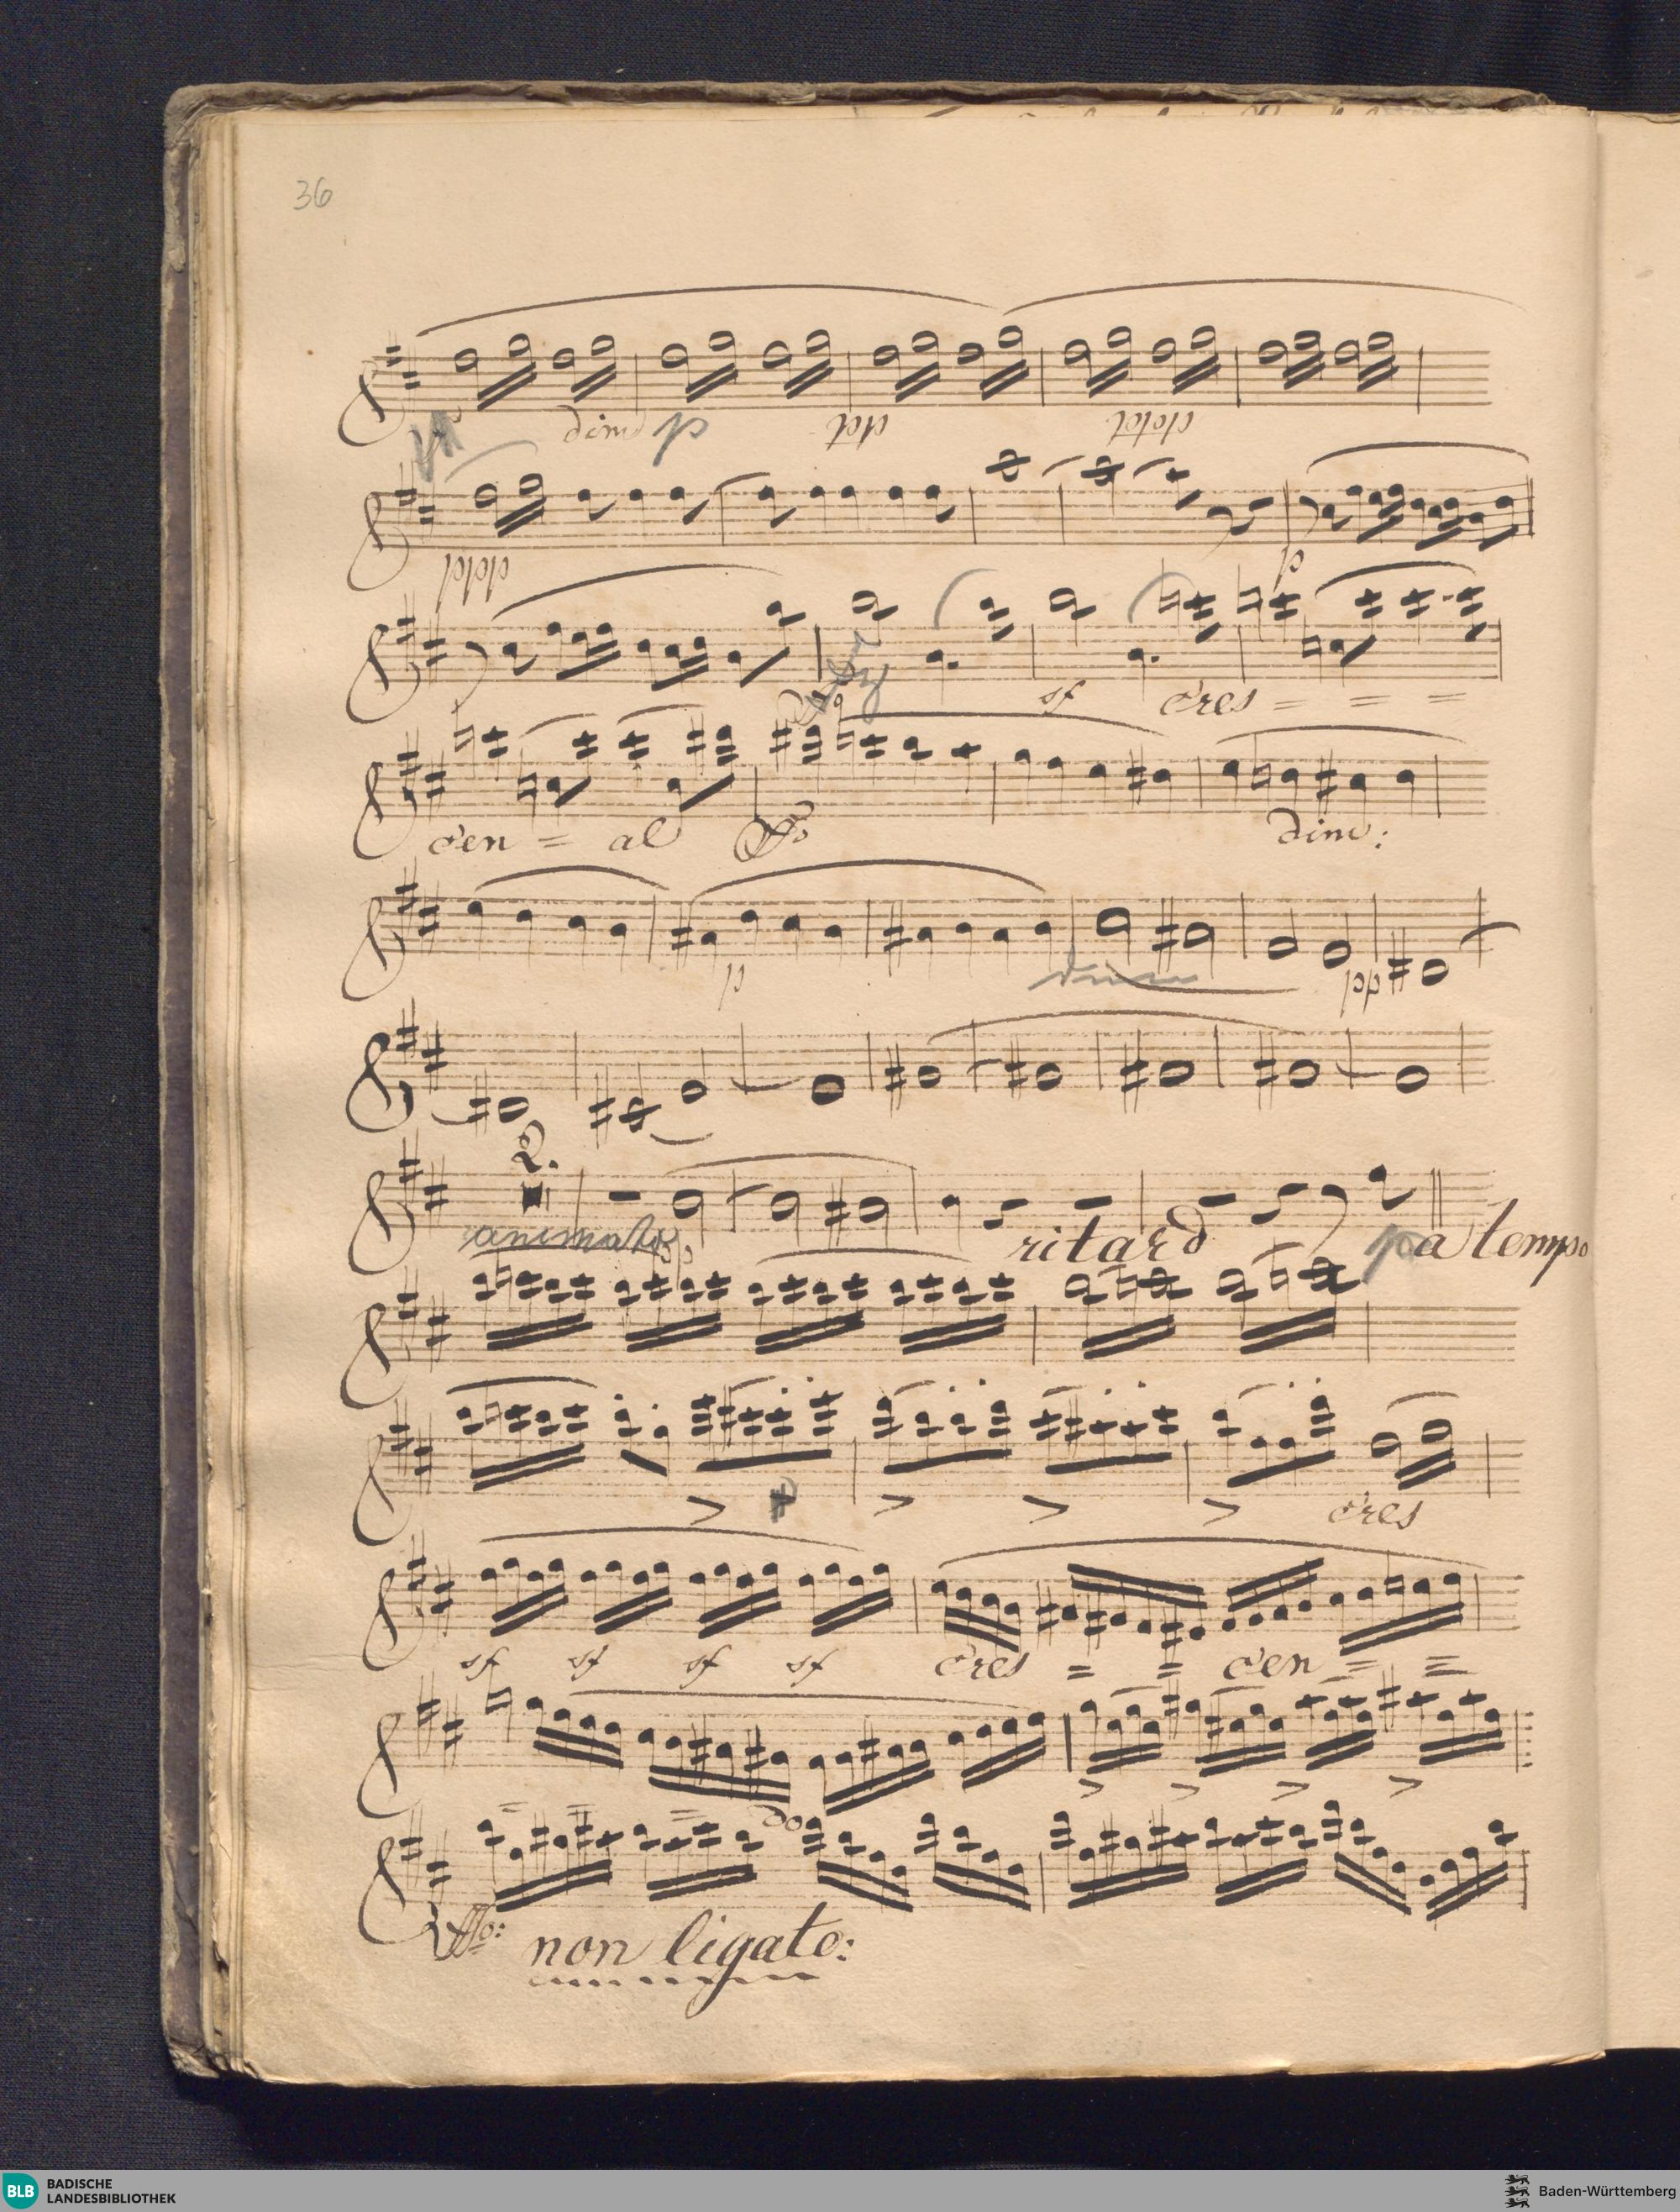 36
dim p pp ppp
pppp p
sf cres = = =
cen = al ffo dim:
p dim pp
2.
animato ritard p a tempo
cres
sf sf sf sf cres = = cen = =
= = = do
ffo: non ligato:
BLB BADISCHE
LANDESBIBLIOTHEK
Baden-Württemberg